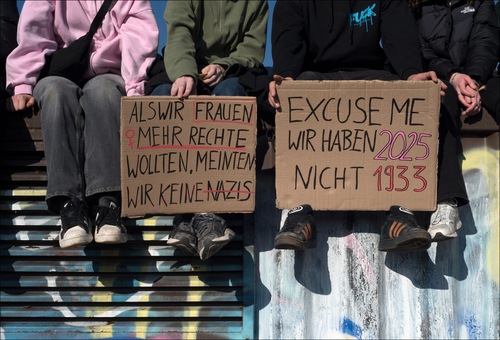 ALS WIR FRAUEN
♀MEHR RECHTE
WOLLTEN, MEINTEN
WIR KEINE NAZIS
EXCUSE ME
WIR HABEN 2025
NICHT 1933
FUCK